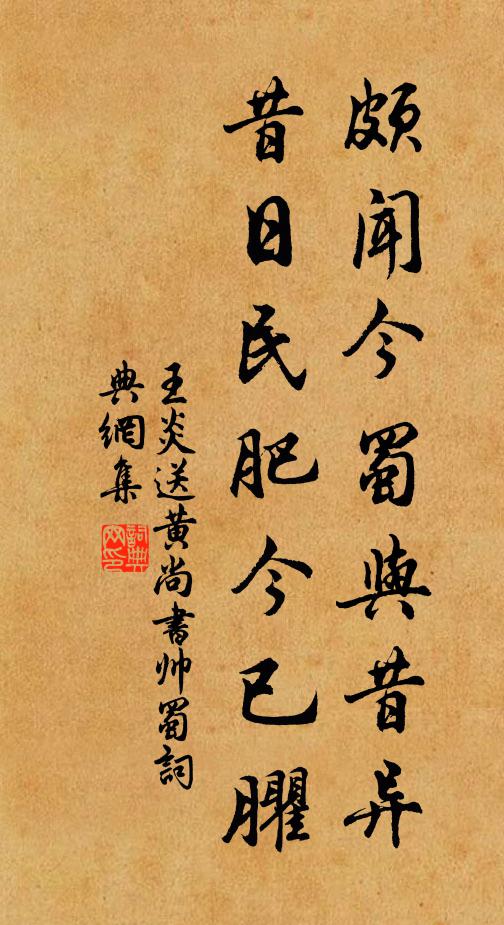 頗聞今蜀與昔异
昔日民肥今已臞
王炎送黄尚書帅蜀詞
典網集
詞典
网印